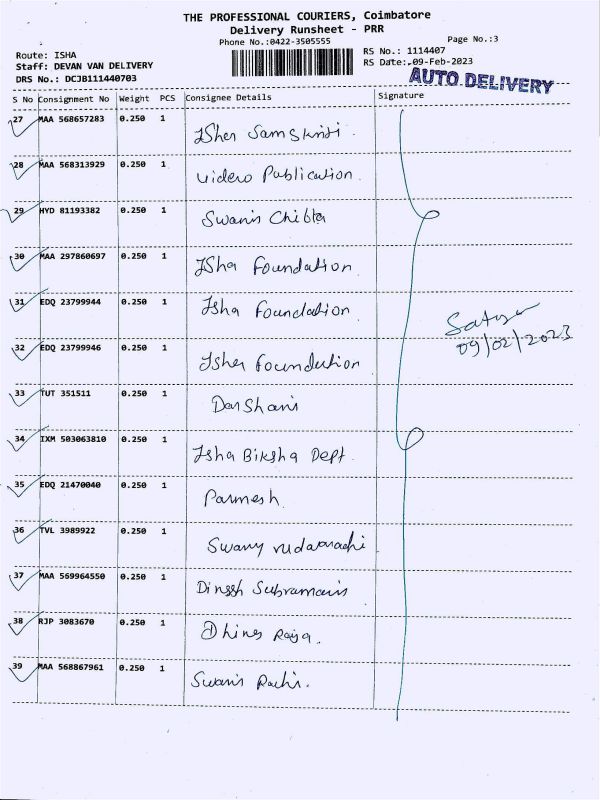 THE PROFESSIONAL COURIERS, Coimbatore
Delivery Runsheet - PRR
Phone No.:0422-3505555
Page No.:3
Route: ISHA
RS No.: 1114407
Staff: DEVAN VAN DELIVERY
RS Date:.09-Feb-2023
DRS No.: DCJB111440703
AUTO DELIVERY
S No Consignment No Weight PCS Consignee Details Signature
27 MAA 568657283 0.250 1
28 MAA 568313929 0.250 1 Publication
29 HYD 81193382 0.250 1
30 MAA 297860697 0.250 1 Isha Foundation
31 EDQ 23799944 0.250 1 Isha Foundation
32 EDQ 23799946 0.250 1 Isha Foundation
09/02/2023
33 TUT 351511 0.250 1
34 IXM 503063810 0.250 1 Isha Biksha Dept
35 EDQ 21470040 0.250 1 Parmesh
36 TVL 3989922 0.250 1 Swamy
37 MAA 569964550 0.250 1
38 RJP 3083670 0.250 1
39 MAA 568867961 0.250 1